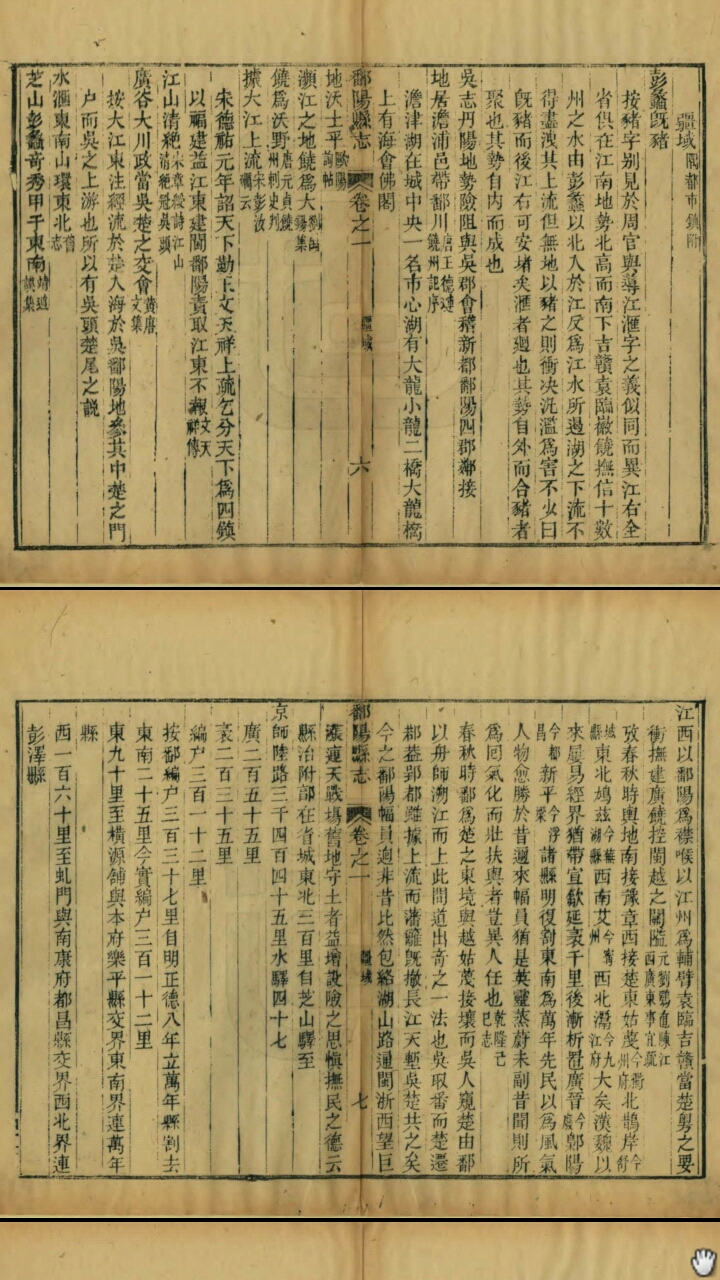 疆域 隅都市鎮附
彭蠡旣豬
按豬字別見於周官與導江滙字之義似同而異江右全
省俱在江南地勢北高而南下吉贛袁臨徽饒撫信十數
州之水由彭蠡以北入於江反爲江水所遏湖之下流不
得盡洩其上流但無地以豬之則衝决汎濫爲害不少曰
旣豬而後江右可安堵矣滙者迴也其勢自外而合豬者
聚也其勢自内而成也
吳志丹陽地勢險阻與吳郡會稽新都鄱陽四郡鄰接
地居澹浦邑帶鄱川 唐王德璉饒州記序
澹津湖在城中央一名市心湖有大龍小龍二橋大龍橋
上有海會佛閣
鄱陽縣志 卷之一 疆域 六
地沃土平 歐陽詢帖
瀕江之地饒爲大
饒爲沃野 唐元貞饒州刺史判
據大江上流 宋彭汝礪云
宋德祐元年詔天下勤王文天祥上疏乞分天下爲四鎮
以福建益江東建閫鄱陽責取江東不報 文天祥傳
江山清絶 宋章綬詩江山清絶冠吳頭
廣谷大川政當吳楚之交會 黄唐文集
按大江東注經流於楚入海於吳鄱陽地參其中楚之門
户而吳之上游也所以有吳頭楚尾之説
水滙東南山環東北 舊志
芝山彭蠡奇秀甲于東南
江西以鄱陽爲襟喉以江州爲輔臂袁臨吉贛當楚粤之要
衝撫建廣饒控閩越之關隘
攷春秋時輿地南接豫章西接楚東姑蔑 今衢州府 北鵲岸 今舒
城縣 東北鳩兹 今蕪湖縣 西南艾 今寧州 西北潯 今九江府 大矣漢魏以
來屢易經界猶帶宣歙延袤千里後漸析置廣晉 鄡陽
今都昌 新平 今浮梁 諸縣明復割東南爲萬年先民以爲風氣
人物愈勝於昔邇來幅員猶是英靈蒸蔚未副昔聞則所
爲囘氣化而壯扶輿者豈異人任也 乾隆己巳志
春秋時鄱爲楚之東境與越姑蔑接壤而吳人窺楚由鄱
以舟師溯江而上此間道出奇之一法也吳取番而楚遷
郡葢郢都雖據上流而藩籬旣撤長江天塹吳楚共之矣
今之鄱陽幅員迥非昔比然包絡湖山路通閩浙西望巨
鄱陽縣志 卷之一 疆域 七
漲連天戰塲舊地守土者益增設險之思愼撫民之德云
縣治附郡在省城東北三百里自芝山驛至
京師陸路三千四百四十五里水驛四十七
廣二百五十五里
袤二百三十五里
編户三百一十二里
按鄱編户三百三十七里自明正德八年立萬年縣割去
東南二十五里今實編户三百一十二里
東九十里至横源舖與本府樂平縣交界東南界連萬年
縣
西一百六十里至虬門與南康府都昌縣交界西北界連
彭澤縣